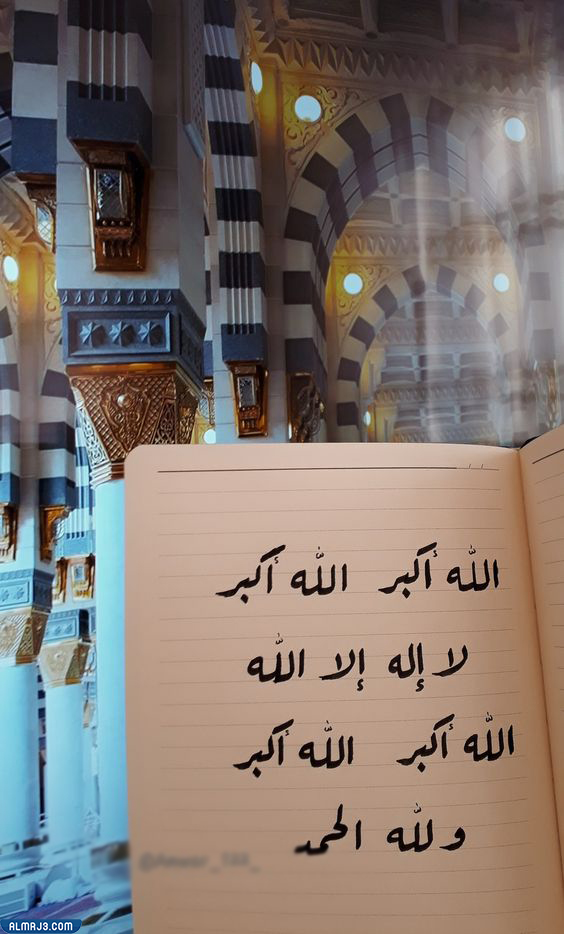 الله أكبر الله أكبر
لا إله إلا الله
الله أكبر الله أكبر
ولله الحمد
ALMRJ3.COM